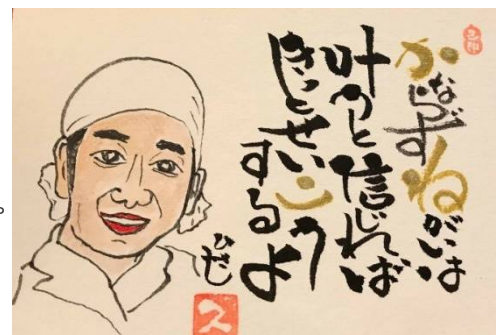 かならずねがいは
叶うと信じれば
きっとせいこう
するよ
ひさし
久
。